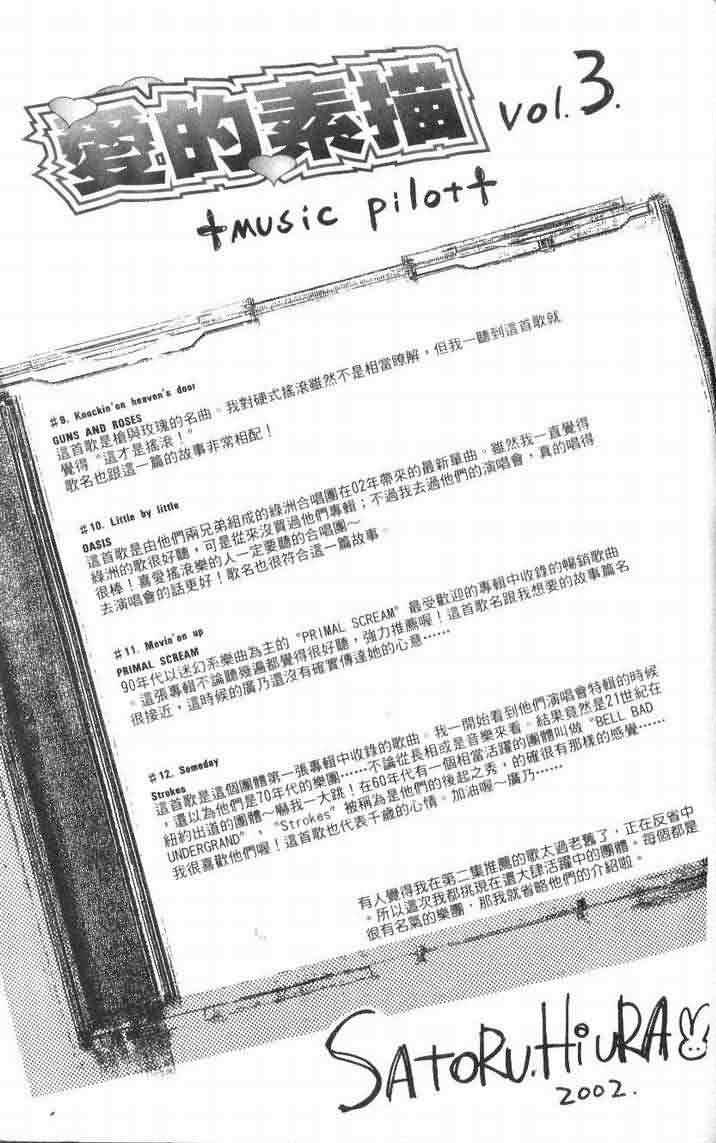 愛的素描 vol.3.
†music pilot†
#9. Knockin'on heaven's door
GUNS AND ROSES
這首歌是槍與玫瑰的名曲。我對硬式搖滾雖然不是相當瞭解，但我一聽到這首歌就
覺得“這才是搖滾！”
歌名也跟這一篇的故事非常相配！
#10. Little by little
OASIS
這首歌是由他們兩兄弟組成的綠洲合唱團在02年帶來的最新單曲。雖然我一直覺得
綠洲的歌很好聽，可是從來沒買過他們專輯；不過我去過他們的演唱會，真的唱得
很棒！喜愛搖滾樂的人一定要聽的合唱團～
去演唱會的話更好！歌名也很符合這一篇故事。
#11. Movin'on up
PRIMAL SCREAM
90年代以迷幻系樂曲為主的“PRIMAL SCREAM”最受歡迎的專輯中收錄的暢銷歌曲
。這張專輯不論聽幾遍都覺得很好聽，強力推薦喔！這首歌名跟我想要的故事篇名
很接近，這時候的廣乃還沒有確實傳達她的心意……
#12. Someday
Strokes
這首歌是這個團體第一張專輯中收錄的歌曲。我一開始看到他們演唱會特輯的時候
，還以為他們是70年代的樂團……不論從長相或是音樂來看。結果竟然是21世紀在
紐約出道的團體～嚇我一大跳！在60年代有一個相當活躍的團體叫做“BELL BAD
UNDERGRAND”，“Strokes”被稱為是他們的後起之秀，的確很有那樣的感覺……
我很喜歡他們喔！這首歌也代表千歲的心情。加油喔～廣乃……
有人覺得我在第二集推薦的歌太過老舊了，正在反省中
。所以這次我都挑現在還大肆活躍中的團體。每個都是
很有名氣的樂團，那我就省略他們的介紹啦。
SATORU.HiURA
2002.